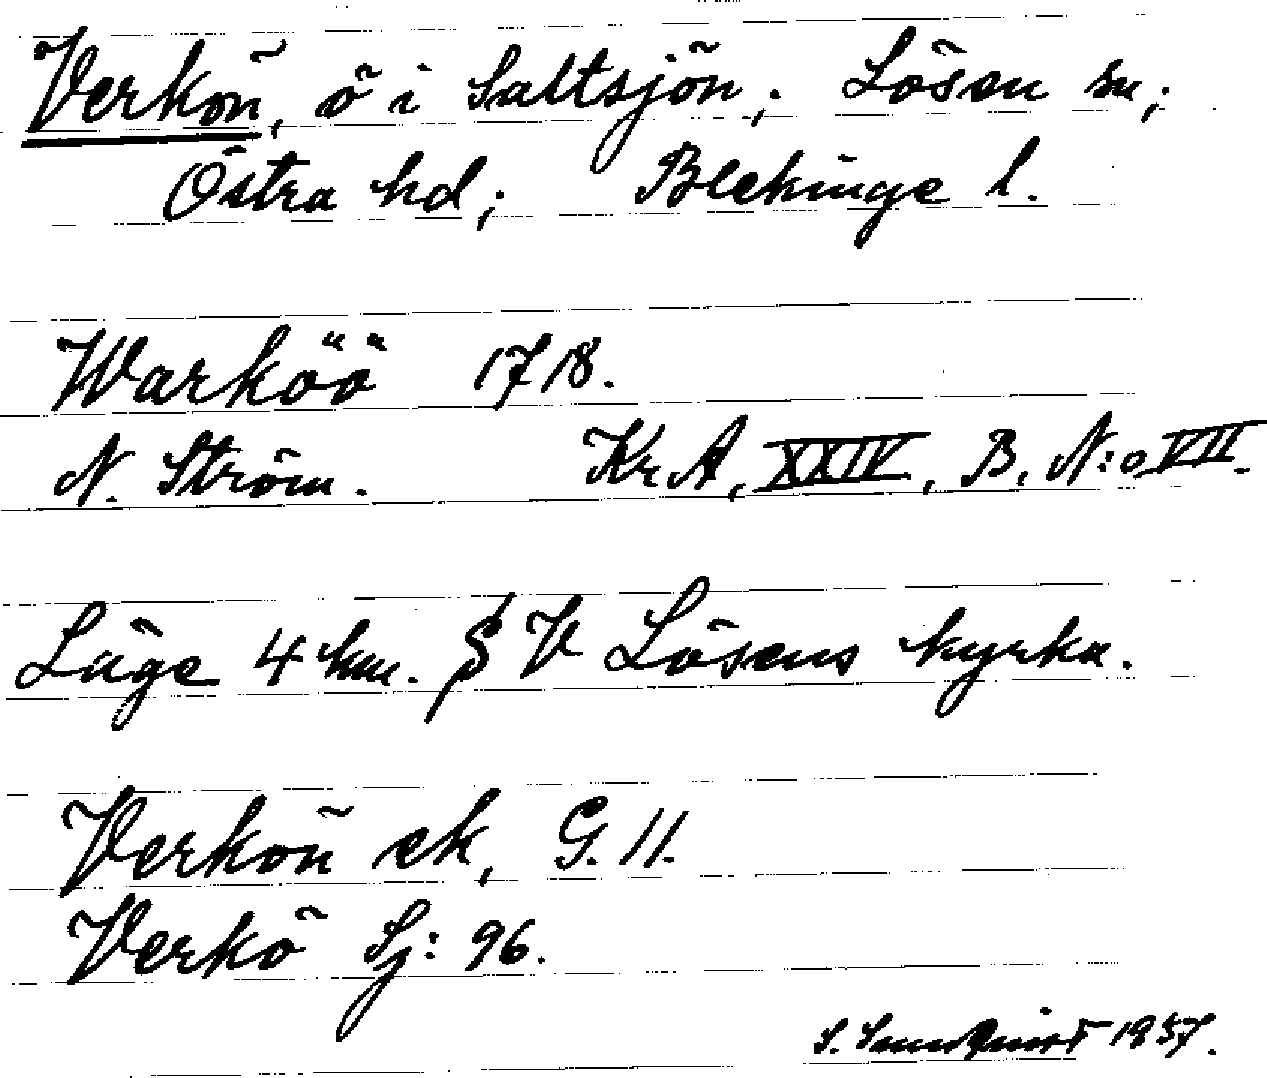 Verkön, ö i Saltsjön; Lösen sn;
Östra hd; Blekinge l.
Warköö 1718.
N. Ström. Kr A, XXIV, B, N:o VII.
Läge 4 km. S V Lösens kyrka.
Verkön ek, G. 11.
Verkö Sj: 96.
S. Sundquist 1937.